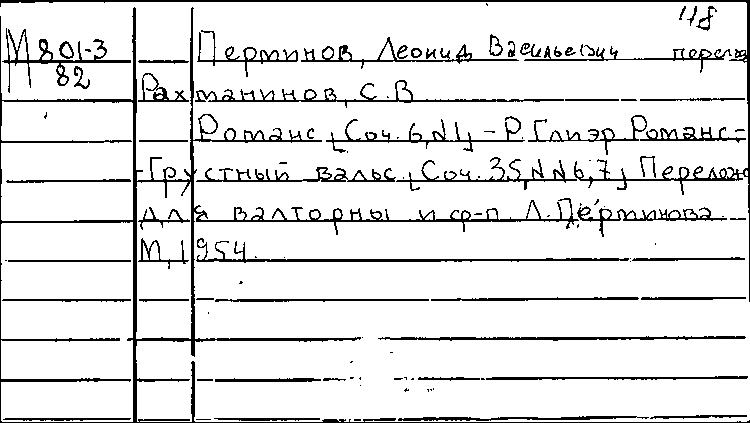 118
М 801-3
82
Перминов, Леонид Васильевич перелож
Рахманинов, С.В
Романс [Соч. 6, N1] - Р. Глиэр Романс=
-Грустный вальс. [Соч. 35, NN6, 7] Перелож
для валторны и ф-п. Л. Перминова
М, 1954.